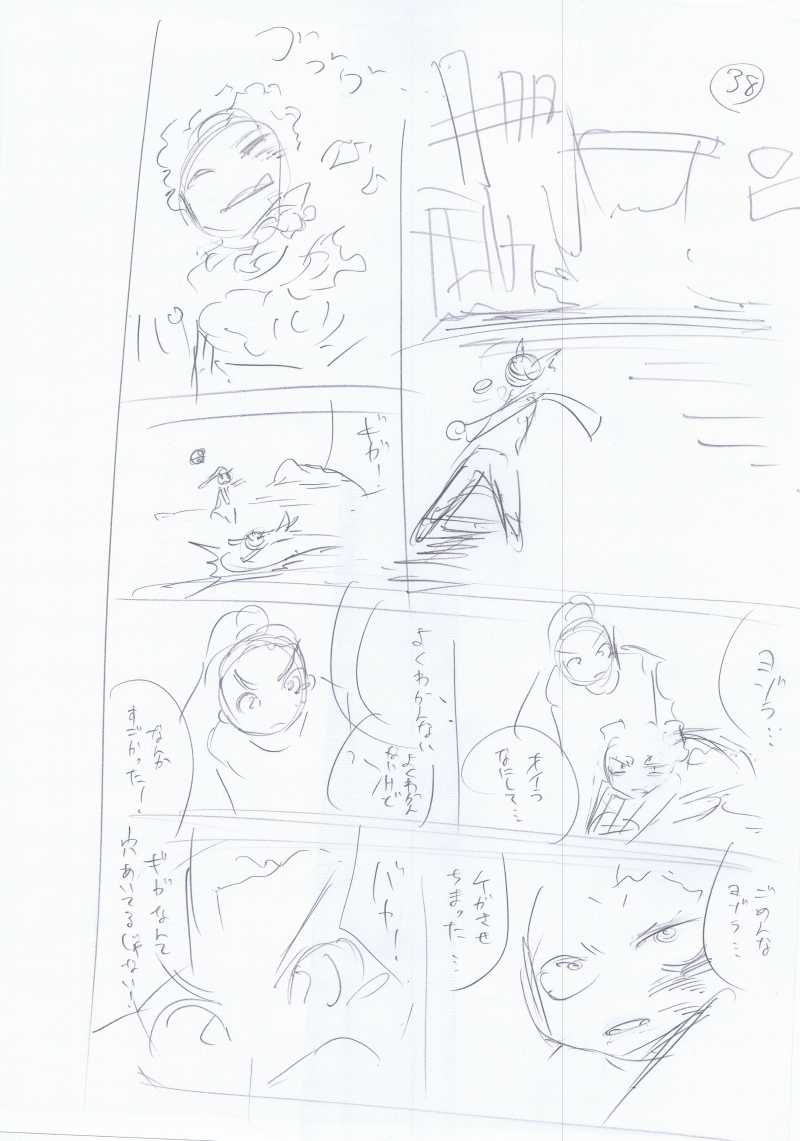 38
ブ
ブ
ブ
パ
ギガー!
ヨゾラ…
オイラ
なにして…
よくわかんない
よくわかん
ないけど
なんか
すごかったー!
ごめんな
ヨゾラ…
ケガさせ
ちまった…
バカー!
ギガなんて
穴あいてるじゃない!